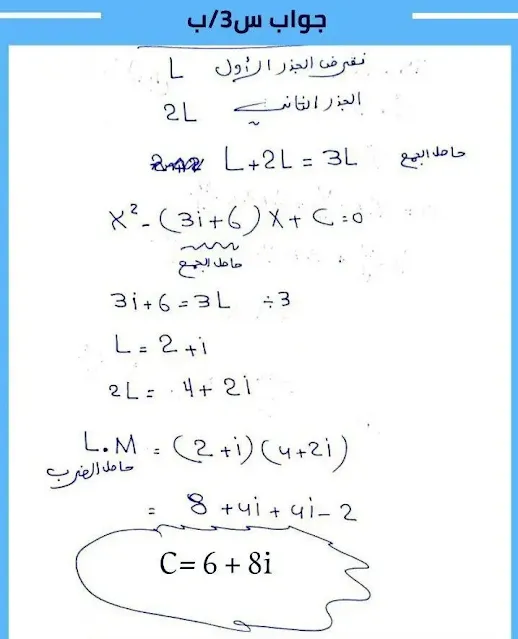 جواب س3/ب
نفرض الجذر الأول L
الجذر الثاني 2L
L+2L = 3L حاصل الجمع
x² - (3i+6)x + C = 0
حاصل الجمع
3i+6 = 3L ÷3
L = 2+i
2L = 4+2i
L.M = (2+i)(4+2i)
حاصل الضرب
= 8+4i+4i-2
C= 6 + 8i